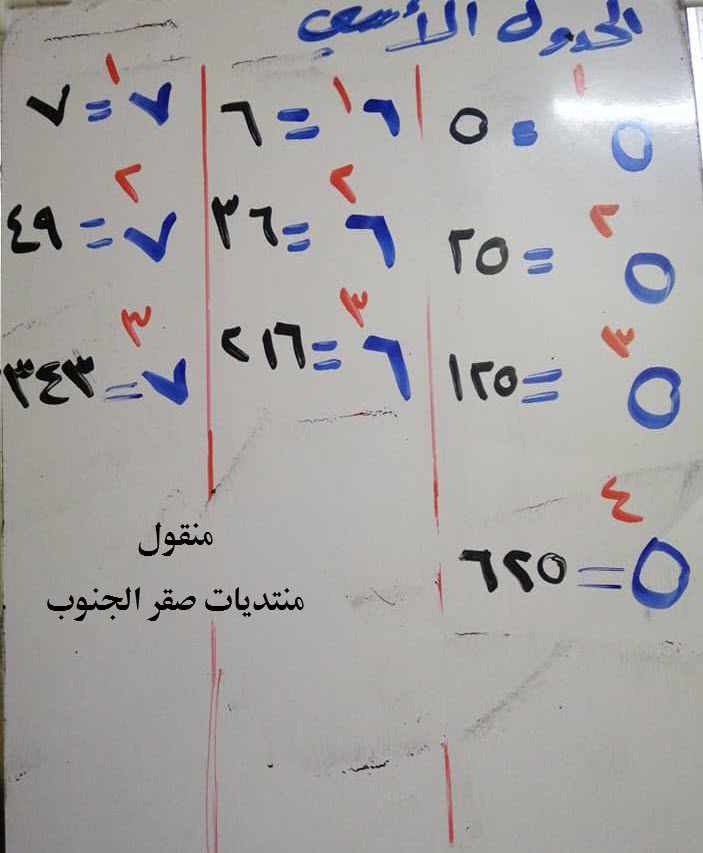 الجدول الأسي
٥^١ = ٥
٥^٢ = ٢٥
٥^٣ = ١٢٥
٥^٤ = ٦٢٥
٦^١ = ٦
٦^٢ = ٣٦
٦^٣ = ٢١٦
٧^١ = ٧
٧^٢ = ٤٩
٧^٣ = ٣٤٣
منقول
منتديات صقر الجنوب